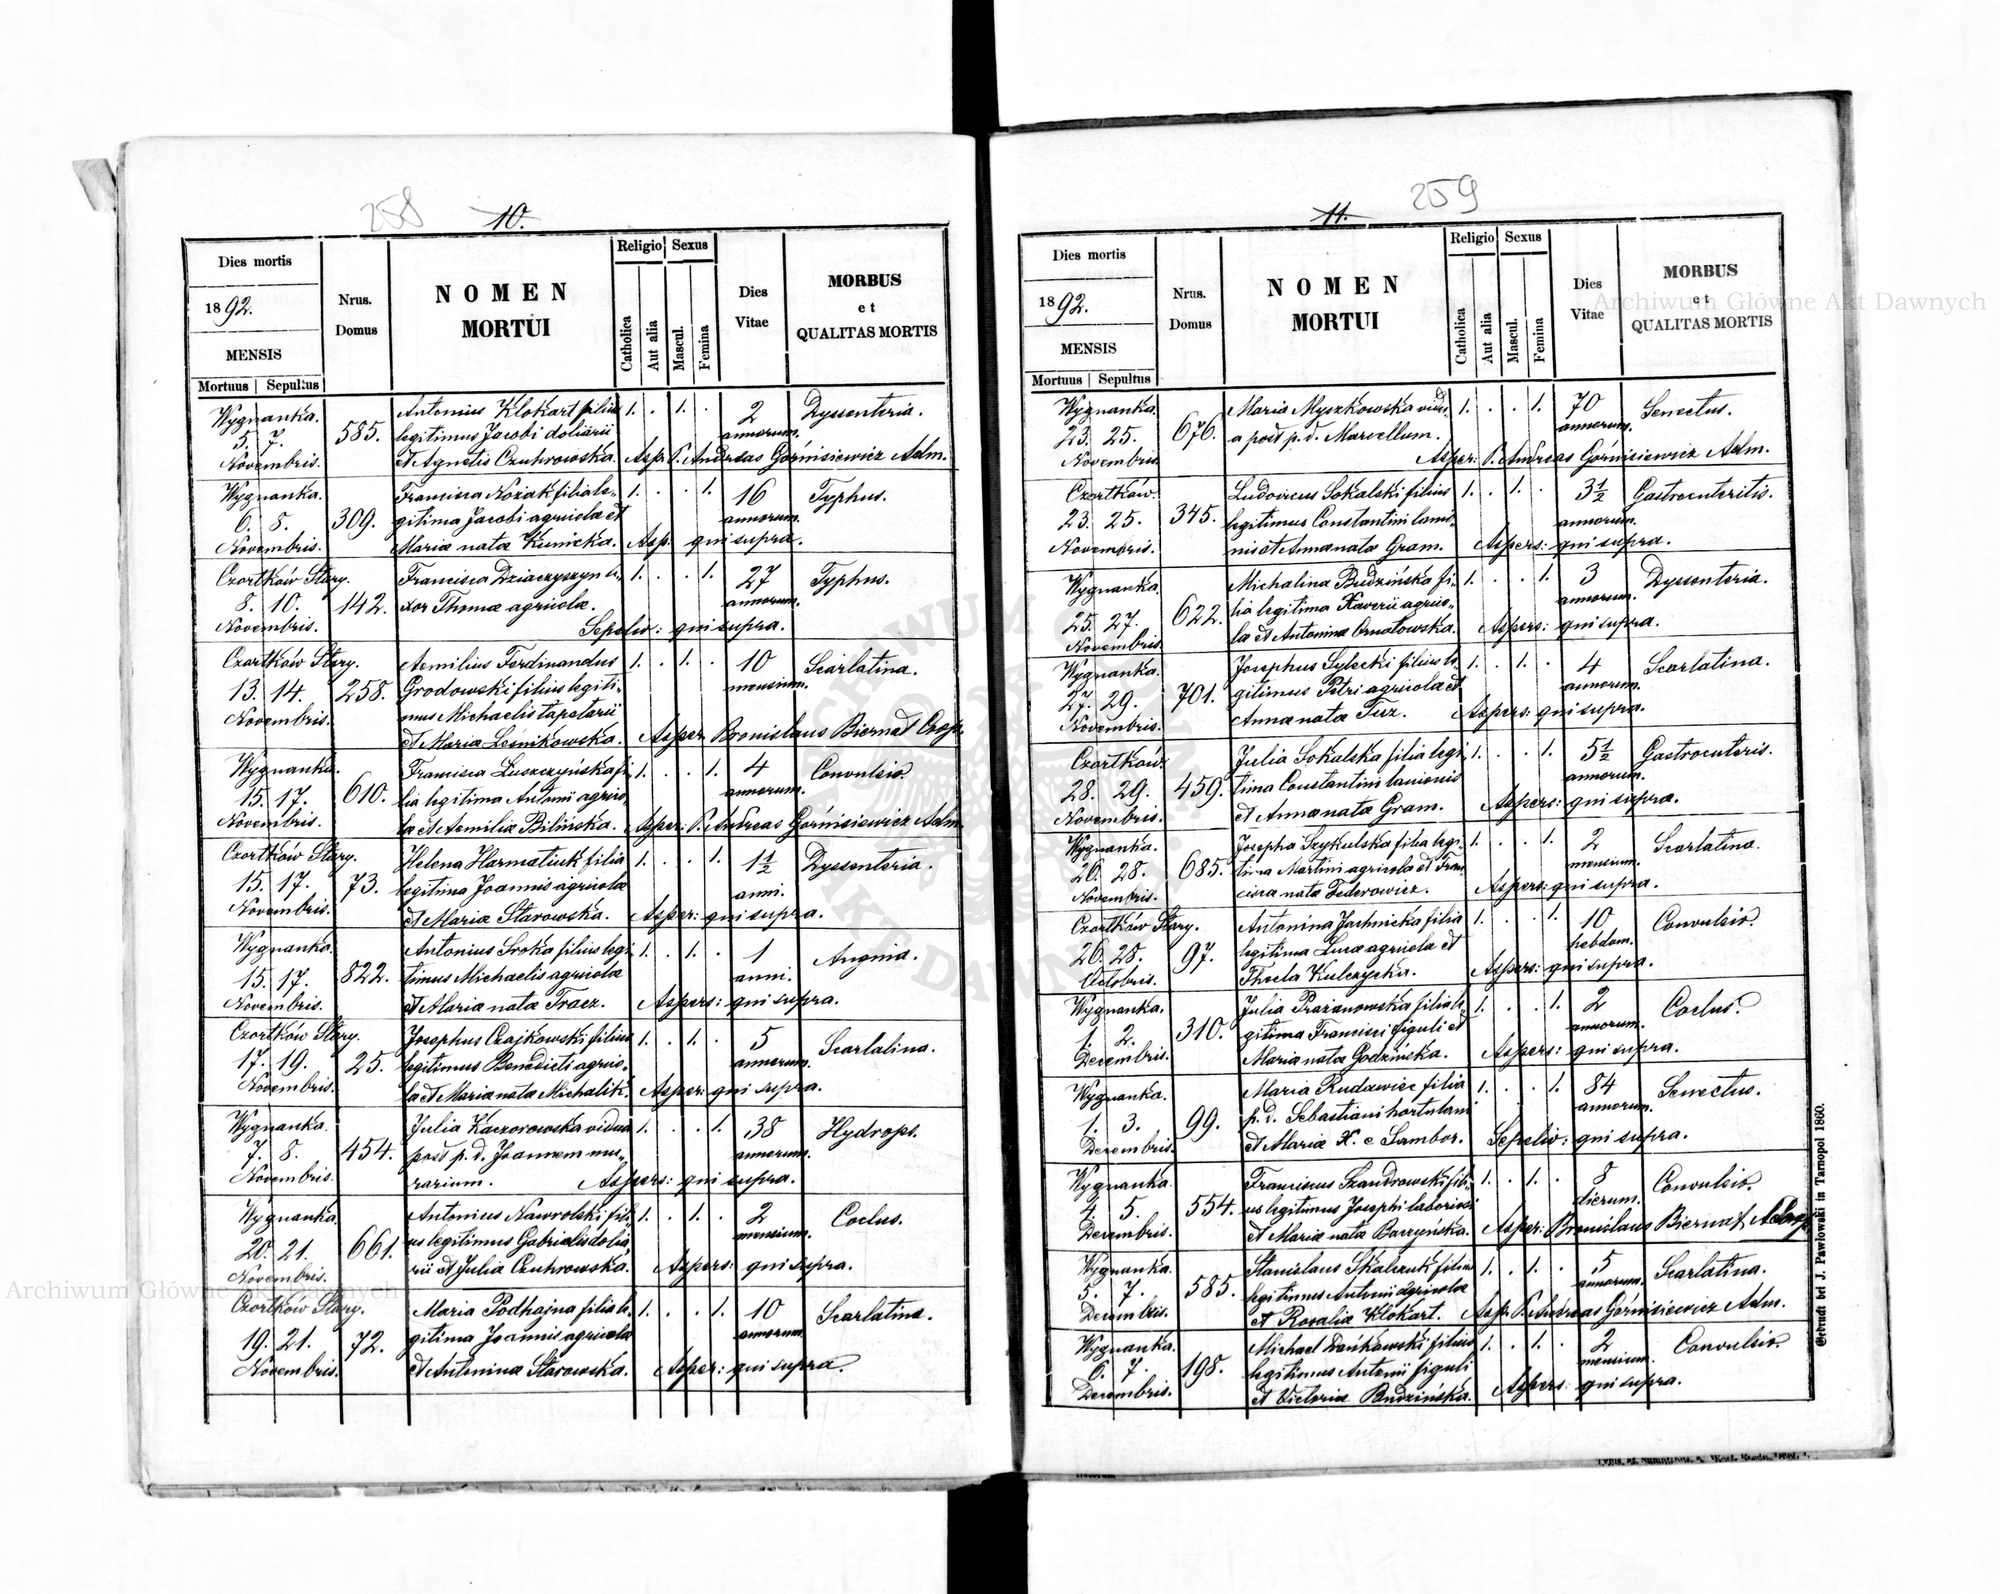 258
10.
Dies mortis
1892.
MENSIS
Mortuus | Sepultus
Nrus. Domus
NOMEN MORTUI
Religio
Catholica
Aut alia
Sexus
Mascul.
Femina
Dies Vitae
MORBUS et QUALITAS MORTIS
Wygnanka. Antonius Klokart filius 1. . 1. . 2 Dyssenteria.
5. 7. 585. legitimus Jacobi doliarii annorum.
Novembris. et Agnetis Czuhrowska. Asp. P. Andreas Górnisiewicz Adm.
Wygnanka. Francisca Nożak filia le- 1. . . 1. 16 Typhus.
6. 8. 309. gitima Jacobi agricola et annorum.
Novembris. Maria nata Kunicka. Asp. qui supra.
Czortków Stary. Francisca Dziaczyszyn u- 1. . . 1. 27 Typhus.
8. 10. 142. xor Thoma agricola. annorum.
Novembris. Sepeliv: qui supra.
Czortków Stary. Aemilius Ferdinandus 1. . 1. . 10 Scarlatina.
13. 14. 258. Grodowski filius legiti- mensium.
Novembris. mus Michaelis tapetarii
et Maria Leśnikowska. Asper. Bronislaus Biernat Coop.
Wygnanka. Francisca Łuszczyńska fi- 1. . . 1. 4 Convulsio.
15. 17. 610. lia legitima Antonii agrico- annorum.
Novembris. la et Aemilia Bilińska. Asper: P. Andreas Górnisiewicz Adm.
Czortków Stary. Helena Harmatiuk filia 1. . . 1. 1 1/2 Dyssenteria.
15. 17. 73. legitima Joannis agricola anni.
Novembris. et Maria Starowska. Asper: qui supra.
Wygnanka. Antonius Sroka filius legi- 1. . 1. . 1 Angina.
15. 17. 822. timus Michaelis agricola anni.
Novembris. et Maria nata Tracz. Aspers: qui supra.
Czortków Stary. Josephus Czajkowski filius 1. . 1. . 5 Scarlatina.
17. 19. 25. legitimus Benedicti agrico- annorum.
Novembris. la et Maria nata Michalik. Asper: qui supra.
Wygnanka. Julia Kaczorowska vidua 1. . . 1. 38 Hydrops.
7. 8. 454. post p. d. Joannem mu- annorum.
Novembris. rarium. Aspers: qui supra.
Wygnanka. Antonius Nawrolski fili- 1. . 1. . 2 Coclus.
20. 21. 661. us legitimus Gabrielis dolia- mensium.
Novembris. rii et Julia Czuhrowska. Aspers: qui supra.
Czortków Stary. Maria Podhajna filia le- 1. . . 1. 10 Scarlatina.
19. 21. 72. gitima Joannis agricola annorum.
Novembris. et Antonina Starowska. Asper: qui supra.
259
11.
Dies mortis
1892.
MENSIS
Mortuus | Sepultus
Nrus. Domus
NOMEN MORTUI
Religio
Catholica
Aut alia
Sexus
Mascul.
Femina
Dies Vitae
MORBUS et QUALITAS MORTIS
Wygnanka. Maria Myszkowska vidu- 1. . . 1. 70 Senectus.
23. 25. 676. a post p. d. Marcellum. annorum.
Novembris. Asper: P. Andreas Górnisiewicz Adm.
Czortków. Ludovicus Sokalski filius 1. . 1. . 3 1/2 Gastroenteritis.
23. 25. 345. legitimus Constantini lani- annorum.
Novembris. nis et Anna nata Gram. Aspers: qui supra.
Wygnanka. Michalina Budzińska fi- 1. . . 1. 3 Dyssenteria.
25. 27. 622. lia legitima Xaverii agrico- annorum.
Novembris. la et Antonina Ornatowska. Aspers: qui supra.
Wygnanka. Josephus Sylecki filius le- 1. . 1. . 4 Scarlatina.
27. 29. 701. gitimus Petri agricola et annorum.
Novembris. Anna nata Tuz. Aspers: qui supra.
Czortków. Julia Sokalska filia legi- 1. . . 1. 5 1/2 Gastroenteris.
28. 29. 459. tima Constantini lanionis annorum.
Novembris. et Anna nata Gram. Aspers: qui supra.
Wygnanka. Josepha Szykulska filia legi- 1. . . 1. 2 Scarlatina.
26. 28. 685. tima Martini agricola et Fran- mensium.
Novembris. cisca nata Federowicz. Aspers: qui supra.
Czortków Stary. Antonina Jachnicka filia 1. . . 1. 10 Convulsio.
26. 28. 97. legitima Luca agricola et hebdom.
Octobris. Thecla Kulczycka. Aspers: qui supra.
Wygnanka. Julia Prazanowska filia le- 1. . . 1. 2 Coclus.
1. 2. 310. gitima Francisci figuli et annorum.
Decembris. Maria nata Godzińska. Aspers: qui supra.
Wygnanka. Maria Rudawiec filia 1. . . 1. 84 Senectus.
1. 3. 99. p. d. Sebastiani hortulani annorum.
Decembris. et Maria X. e Sambor. Sepeliv: qui supra.
Wygnanka. Franciscus Szandrowski fili- 1. . 1. . 8 Convulsio.
4. 5. 554. us legitimus Josephi laboriosi dierum.
Decembris. et Maria nata Barzyńska. Asper: Bronislaus Biernat
Wygnanka. Stanislaus Skalczuk filius 1. . 1. . 5 Scarlatina.
5. 7. 585. legitimus Antonii agricola annorum.
Decembris. et Rosalia Klokart. Asp. P. Andreas Górnisiewicz Adm.
Wygnanka. Michael Dankowski filius 1. . 1. . 2 Convulsio.
6. 7. 198. legitimus Antonii figuli mensium.
Decembris. et Victoria Budzińska. Aspers: qui supra.
Gedruckt bei J. Pawłowski in Tarnopol 1860.
Archiwum Główne Akt Dawnych
Archiwum Główne Akt Dawnych